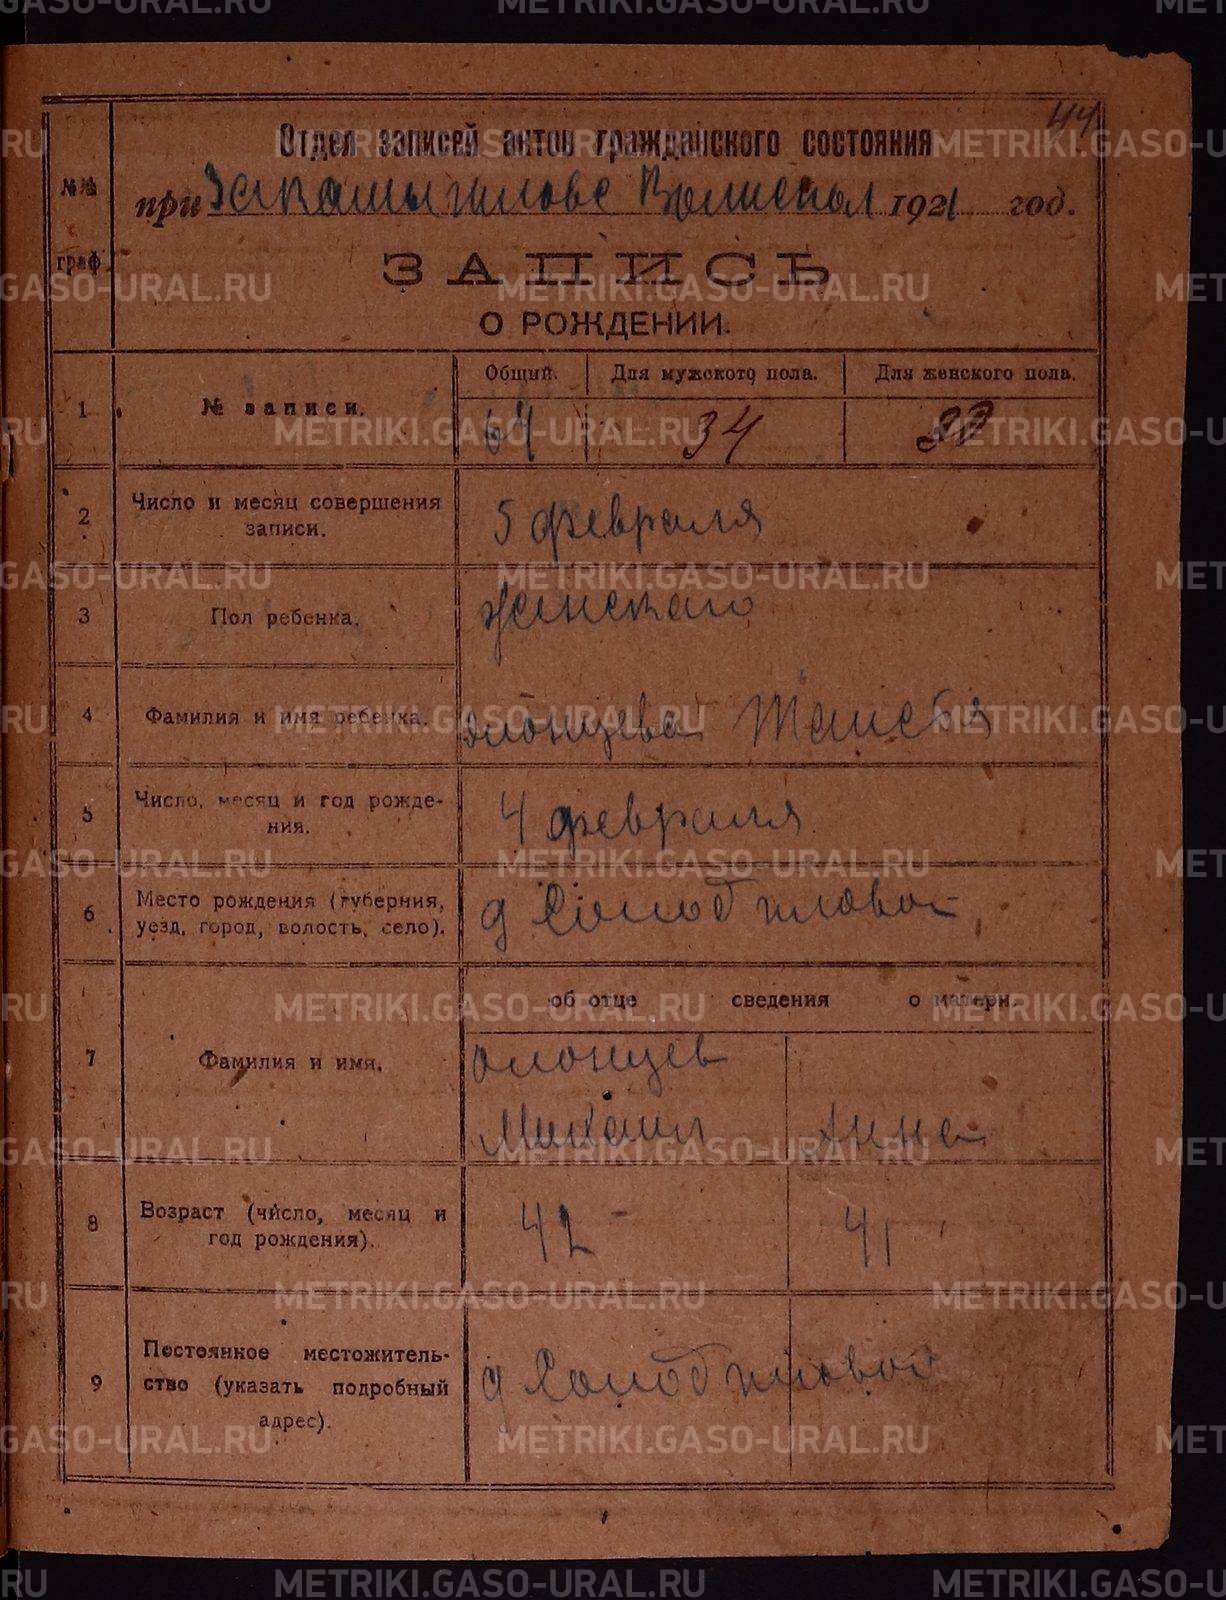 44
Отдел записей актов гражданского состояния
при Закамышловс Волиспол 1921 год.
№№ граф.
ЗАПИСЬ
О РОЖДЕНИИ.
1 № записи.
Общий. Для мужского пола. Для женского пола.
64 34 30
2 Число и месяц совершения
записи.
5 февраля
3 Пол ребенка.
женскаго
4 Фамилия и имя ребенка.
Олонцева
5 Число, месяц и год рожде-
ния.
4 февраля
6 Место рождения (губерния,
уезд, город, волость, село).
д
об отце сведения о матери.
7 Фамилия и имя.
Олонцев
Михаил Анна
8 Возраст (число, месяц и
год рождения).
42 41
9 Постоянное местожитель-
ство (указать подробный
адрес).
д
METRIKI.GASO-URAL.RU